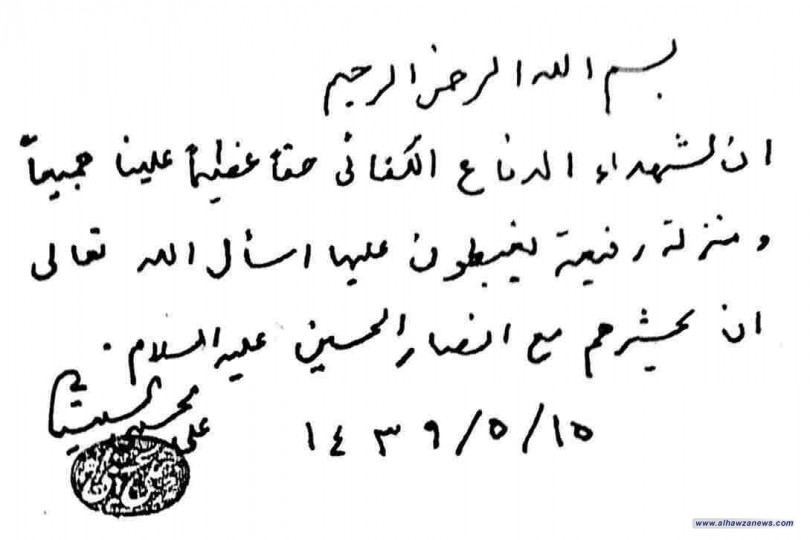 بسم الله الرحمن الرحيم
ان لشهداء الدفاع الكفائي حقاً عظيماً علينا جميعاً
ومنزلة رفيعة يغبطون عليها اسأل الله تعالى
ان يحشرهم مع انصار الحسين عليه السلام.
علي الحسيني السيستاني
١٥/٥/١٤٣٩
www.alhawzanews.com